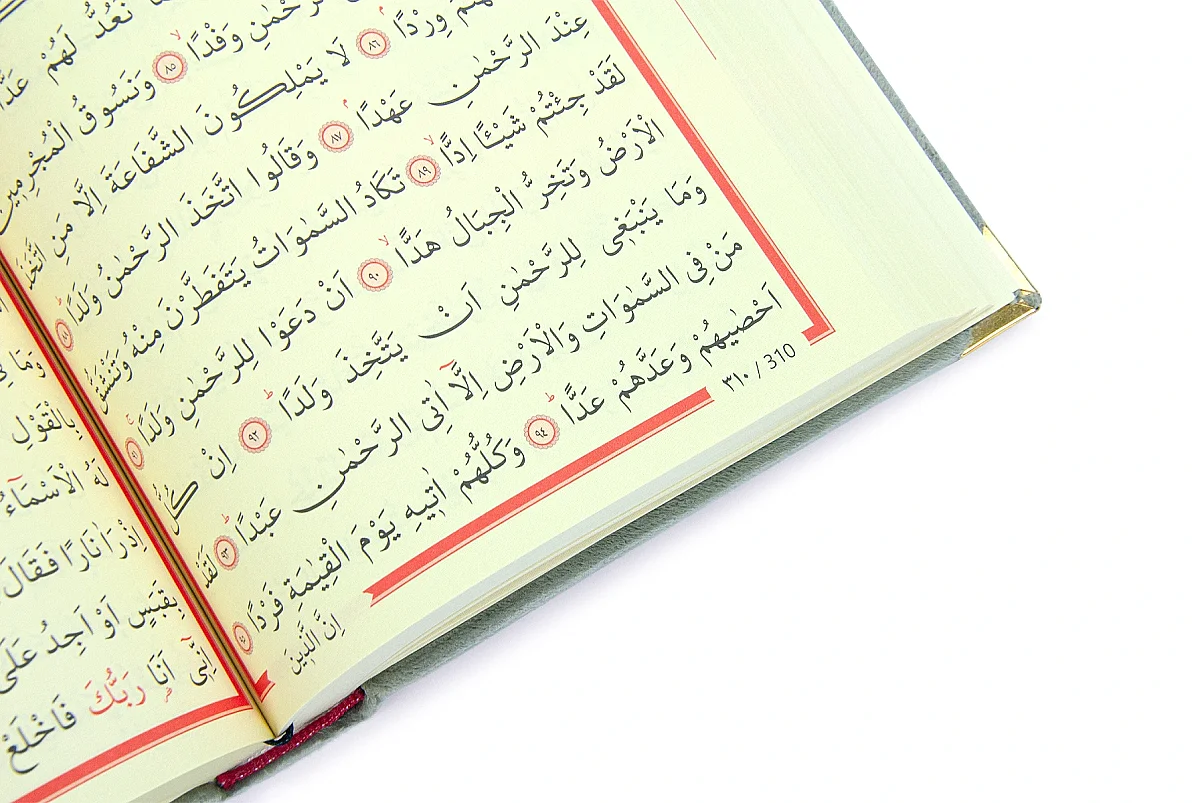 نَعُدُّ لَهُمْ عَدًّا
وَفْدًا ﴿٨٥﴾ وَنَسُوقُ الْمُجْرِمٖينَ
وِرْدًا ﴿٨٦﴾ لَا يَمْلِكُونَ الشَّفَاعَةَ اِلَّا مَنِ اتَّخَذَ
عِنْدَ الرَّحْمٰنِ عَهْدًا ﴿٨٧﴾ وَقَالُوا اتَّخَذَ الرَّحْمٰنُ وَلَدًا ﴿٨٨﴾
لَقَدْ جِئْتُمْ شَيْـًٔا اِدًّا ﴿٨٩﴾ تَكَادُ السَّمٰوَاتُ يَتَفَطَّرْنَ مِنْهُ وَتَنْشَقُّ
الْاَرْضُ وَتَخِرُّ الْجِبَالُ هَدًّا ﴿٩٠﴾ اَنْ دَعَوْا لِلرَّحْمٰنِ وَلَدًا ﴿٩١﴾
وَمَا يَنْبَغٖى لِلرَّحْمٰنِ اَنْ يَتَّخِذَ وَلَدًا ﴿٩٢﴾ اِنْ كُلُّ
مَنْ فِى السَّمٰوَاتِ وَالْاَرْضِ اِلَّٓا اٰتِى الرَّحْمٰنِ عَبْدًا ﴿٩٣﴾ لَقَدْ
اَحْصٰيهُمْ وَعَدَّهُمْ عَدًّا ﴿٩٤﴾ وَكُلُّهُمْ اٰتٖيهِ يَوْمَ الْقِيٰمَةِ فَرْدًا ﴿٩٥﴾
٣١٠ / 310
اِنَّ الَّذٖينَ
وَمَا
بِالْقَوْلِ
لَهُ الْاَسْمَٓاءُ
اِذْ رَاٰ نَارًا فَقَالَ
بِقَبَسٍ اَوْ اَجِدُ عَلَى
اِنّٖٓى اَنَا رَبُّكَ فَاخْلَعْ